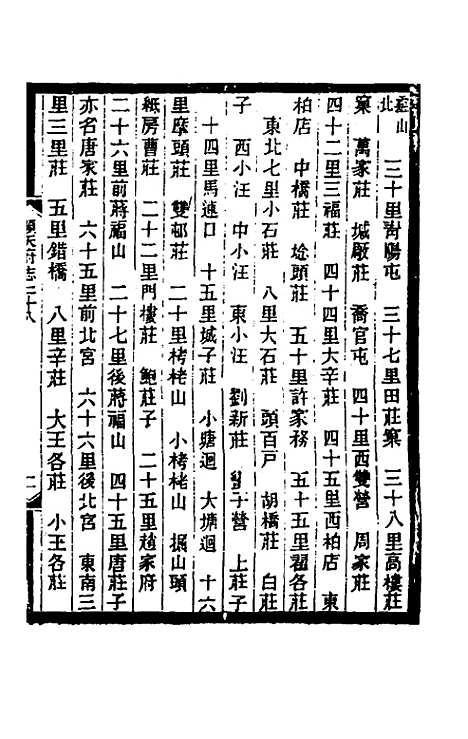 北 莊山 三十里尙陽屯 三十七里田莊窠 三十八里高樓莊
窠 萬家莊 城廠莊 喬官屯 四十里西雙營 周家莊
四十二里三福莊 四十四里大辛莊 四十五里西柏店 東
柏店 中橋莊 埝頭莊 五十里許家務 五十五里翟各莊
東北七里小石莊 八里大石莊 頭百戸 胡橋莊 白莊
子 西小汪 中小汪 東小汪 劉新莊 營 上莊子
十四里馬速口 十五里城子莊 小塘迴 大塘迴 十六
里摩頭莊 雙邨莊 二十里栲栳山 小栲栳山 掘山頭
紙房曹莊 二十二里門樓莊 鮑莊子 二十五里趙家府
二十六里前蔣福山 二十七里後蔣福山 四十五里唐莊子
亦名唐家莊 六十五里前北宮 六十六里後北宮 東南三
里三里莊 五里錯橋 八里辛莊 大王各莊 小王各莊
順天府志二十八